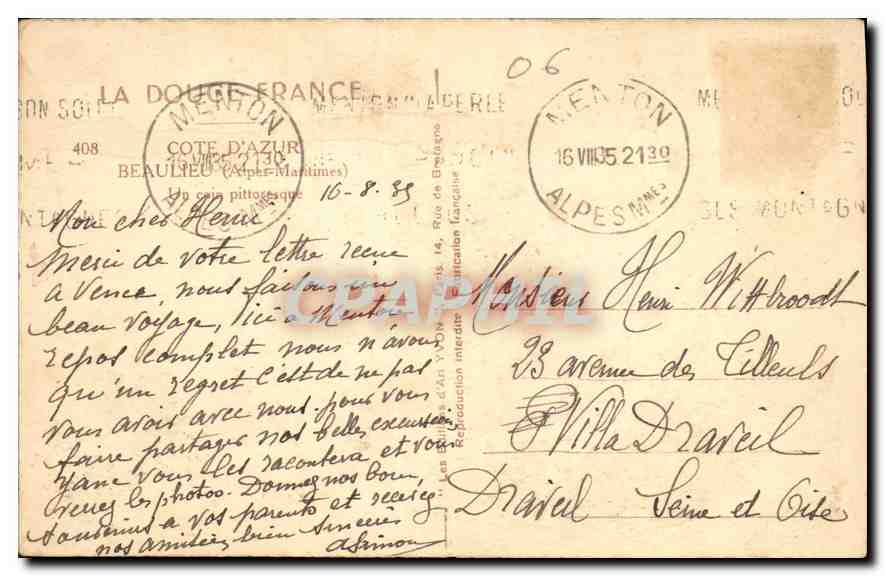 06
LA DOUCE FRANCE
MENTON
16 VIII 35 2130
ALPES MMES
408
COTE D'AZUR
BEAULIEU (Alpes-Maritimes)
Un coin pittoresque
16-8-35
Mon cher Henri
Merci de votre lettre recue
a Vence, nous faisons un
beau voyage, Ici a Menton
repos complet nous n'avons
qu'un regret c'est de ne pas
vous avoir avec nous pour vous
faire partager nos belles excursions
vous les racontera et vous
verrez les photos. Donnez nos bons
souvenirs a vos parents et recevez
nos amitiés bien sincères
ASimon
Les Editions d'Art YVON Paris, 14, Rue de Bretagne
Reproduction interdite Fabrication française
MENTON
16 VIII 35 2130
ALPES MMES
Monsieur Henri Wittbroodt
23 avenue des Tilleuls
Villa Draveil
Draveil Seine et Oise
CPAPHIL